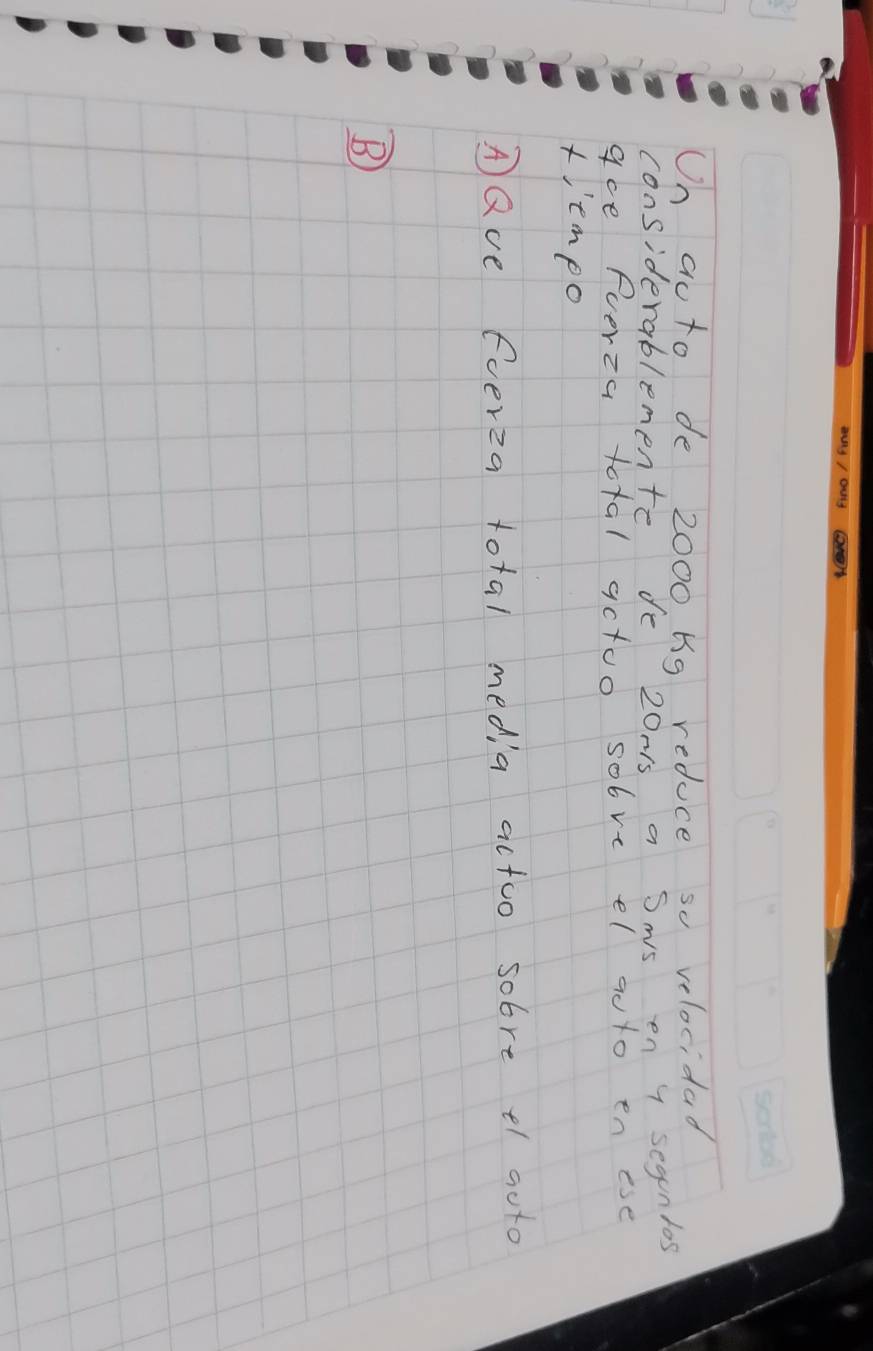 Un auto de 2000 kg reduce su velocidad
considerablemente de 20m/s a 5m/s en 4 segundos
que fuerza total actuo sobre el auto en ese
tiempo
A) Que fuerza total media actuo sobre el auto
B)
BIC Fino / Fine
Scribe